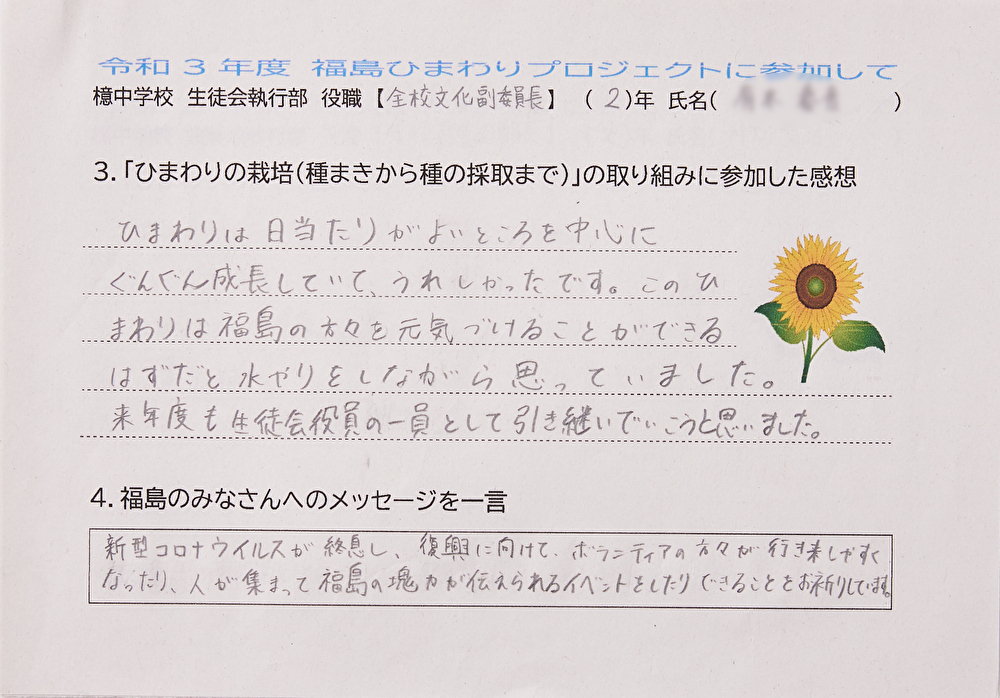 令和3年度 福島ひまわりプロジェクトに参加して
檍中学校 生徒会執行部 役職【全校文化副委員長】 (2)年 氏名( )
3.「ひまわりの栽培(種まきから種の採取まで)」の取り組みに参加した感想
ひまわりは日当たりがよいところを中心に
ぐんぐん成長していて、うれしかったです。このひ
まわりは福島の方々を元気づけることができる
はずだと水やりをしながら思っていました。
来年度も生徒会役員の一員として引き継いでいこうと思いました。
4.福島のみなさんへのメッセージを一言
新型コロナウイルスが終息し、復興に向けて、ボランティアの方々が行き来しやすく
なったり、人が集まって福島の塊力が伝えられるイベントをしたりできることをお祈りしています。